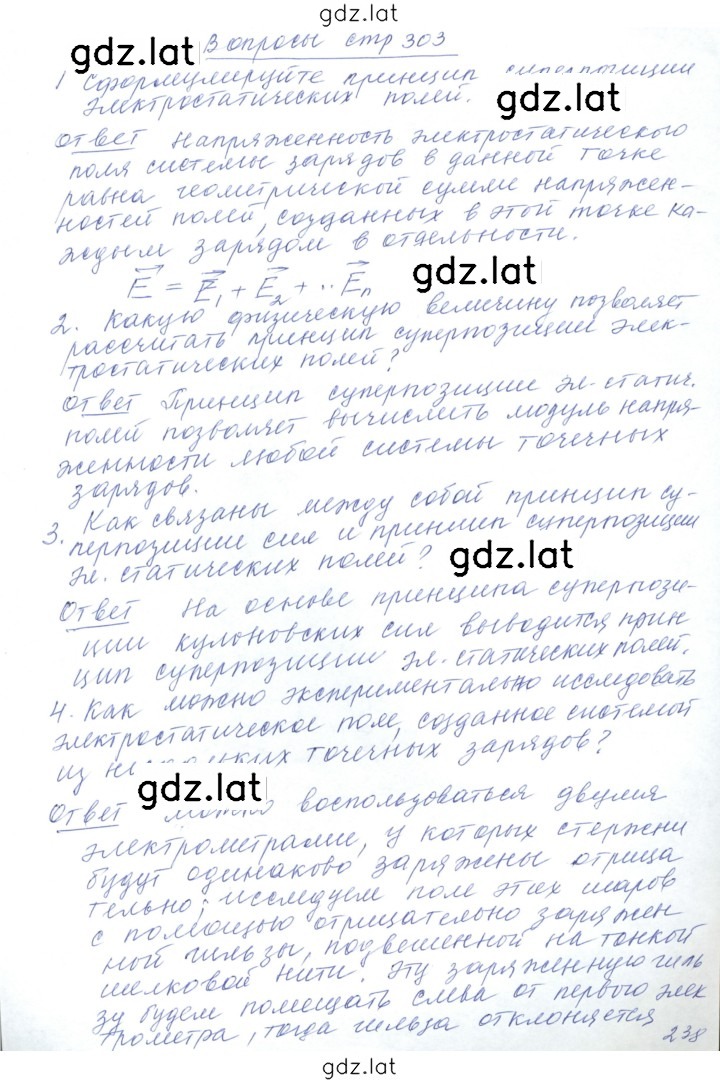 gdz.lat
gdz.lat
Вопросы стр 303
1 Сформулируйте принцип суперпозиции
электростатических полей.
gdz.lat
Ответ Напряженность электростатического
поля системы зарядов в данной точке
равна геометрической сумме напряжен-
ностей полей, созданных в этой точке ка-
ждым зарядом в отдельности.
E = E1 + E2 + .. En
gdz.lat
2. Какую физическую величину позволяет
рассчитать принцип суперпозиции элек-
тростатических полей?
Ответ Принцип суперпозиции эл-статич.
полей позволяет вычислить модуль напря-
женности любой системы точечных
зарядов.
3. Как связаны между собой принцип су-
перпозиции сил и принцип суперпозиции
эл. статических полей?
gdz.lat
Ответ На основе принципа суперпози-
ции кулоновских сил выводится прин
цип суперпозиции эл.статических полей.
4. Как можно экспериментально исследовать
электростатическое поле, созданное системой
из точечных зарядов?
gdz.lat
Ответ можно воспользоваться двумя
электрометрами, у которых стержни
будут одинаково заряжены отрица
тельно; исследуем поле этих шаров
с помощью отрицательно заряжен
ной гильзы, подвешенной на тонкой
шелковой нити. Эту заряженную гиль
зу будем помещать слева от первого элек
трометра, тогда гильза отклоняется
238
gdz.lat